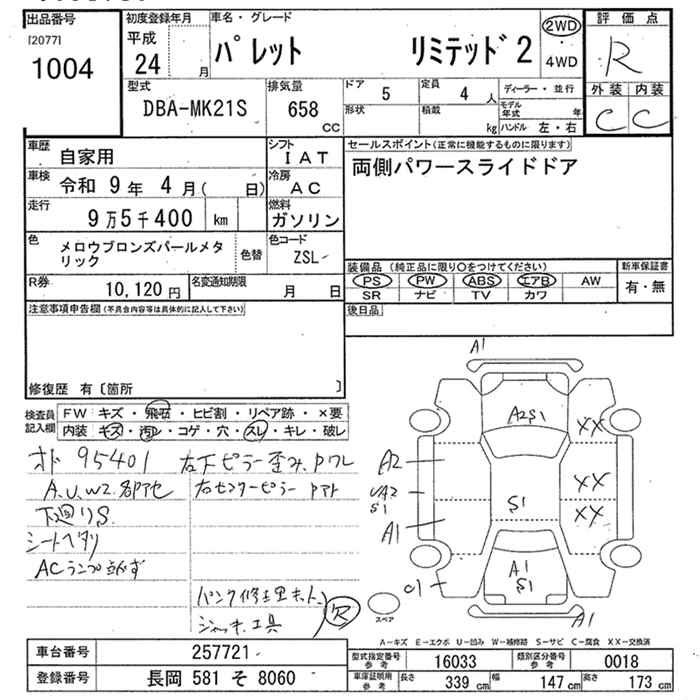 出品番号
[2077]
1004
初度登録年月
平成
24 月
車名・グレード
パレット リミテッド2
2WD
4WD
評価点
R
外装 内装
C C
型式
DBA-MK21S
排気量
658
cc
ドア
5
定員
4 人
形状
積載
kg
ディーラー・並行
モデル年式 年
ハンドル 左・右
車歴
自家用
シフト
IAT
車検
令和 9年 4月( 日)
冷房
AC
走行
9万5千400 km
燃料
ガソリン
色
メロウブロンズパールメタリック
色替
色コード
ZSL
R券
10,120円
名変通知期限
月 日
セールスポイント(正常に機能するものに限ります)
両側パワースライドドア
装備品 (純正品に限り○をつけてください)
新車保証書
PS PW ABS エアB AW
SR ナビ TV カワ
有・無
後日品
注意事項申告欄(不具合内容等は具体的に記入して下さい)
修復歴 有〔箇所 〕
検査員記入欄
FW キズ・飛石・ヒビ割・リペア跡・×要
内装 キズ・汚レ・コゲ・穴・スレ・キレ・破レ
オド 95401
左下ピラー歪み、アワレ
A.U.W2.各部アセ
右センターピラー アアト
下廻りS.
シートヘタリ
ACランプ立たず
パンク修理キット、
ジャッキ、工具
欠
A1
A2S1
A2
UA2
S1
A1
C1
XX
XX
XX
S1
A1
S1
A1
スペア
A－キズ E－エクボ U－凹み W－補修跡 S－サビ C－腐食 XX－交換済
車台番号
257721
登録番号
長岡 581 そ 8060
型式指定番号
参考
16033
類別区分番号
参考
0018
車庫証明用
参考
長さ 339 cm
幅 147 cm
高さ 173 cm